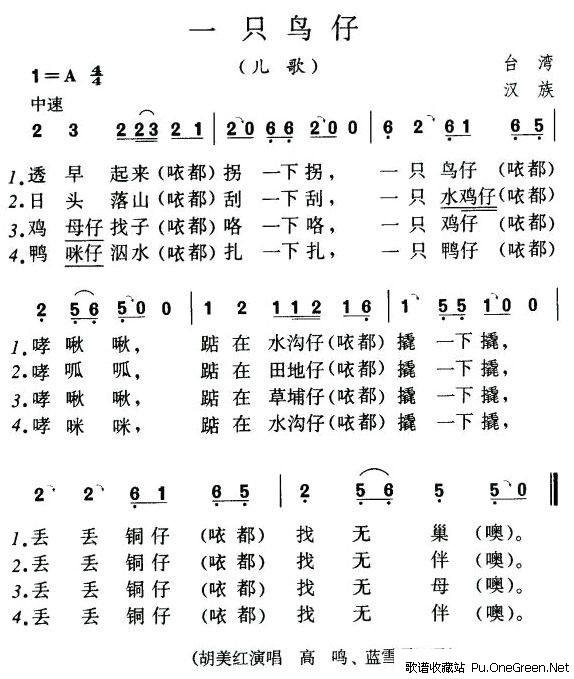 一只鸟仔
（儿歌）
台湾
汉族
1=A 4/4
中速
2 3 2 2 3 2 1 | 2 0 6 6 2 0 0 | 6 2 6 1 6 5 |
1.透早起来（咴都）拐一下拐，一只鸟仔（咴都）
2.日头落山（咴都）刮一下刮，一只水鸡仔（咴都）
3.鸡母仔找子（咴都）咯一下咯，一只鸡仔（咴都）
4.鸭咪仔泅水（咴都）扎一下扎，一只鸭仔（咴都）
2 5 6 5 0 0 | 1 2 1 1 2 1 6 | 1 5 5 1 0 0 |
1.哮啾啾，踮在水沟仔（咴都）撬一下撬，
2.哮呱呱，踮在田地仔（咴都）撬一下撬，
3.哮啾啾，踮在草埔仔（咴都）撬一下撬，
4.哮咪咪，踮在水沟仔（咴都）撬一下撬，
2 2 6 1 6 5 | 2 5 6 5 5 0
1.丢丢铜仔（咴都）找无巢（噢）。
2.丢丢铜仔（咴都）找无伴（噢）。
3.丢丢铜仔（咴都）找无母（噢）。
4.丢丢铜仔（咴都）找无伴（噢）。
（胡美红演唱 高鸣、蓝雪
歌谱收藏站 Pu.OneGreen.Net